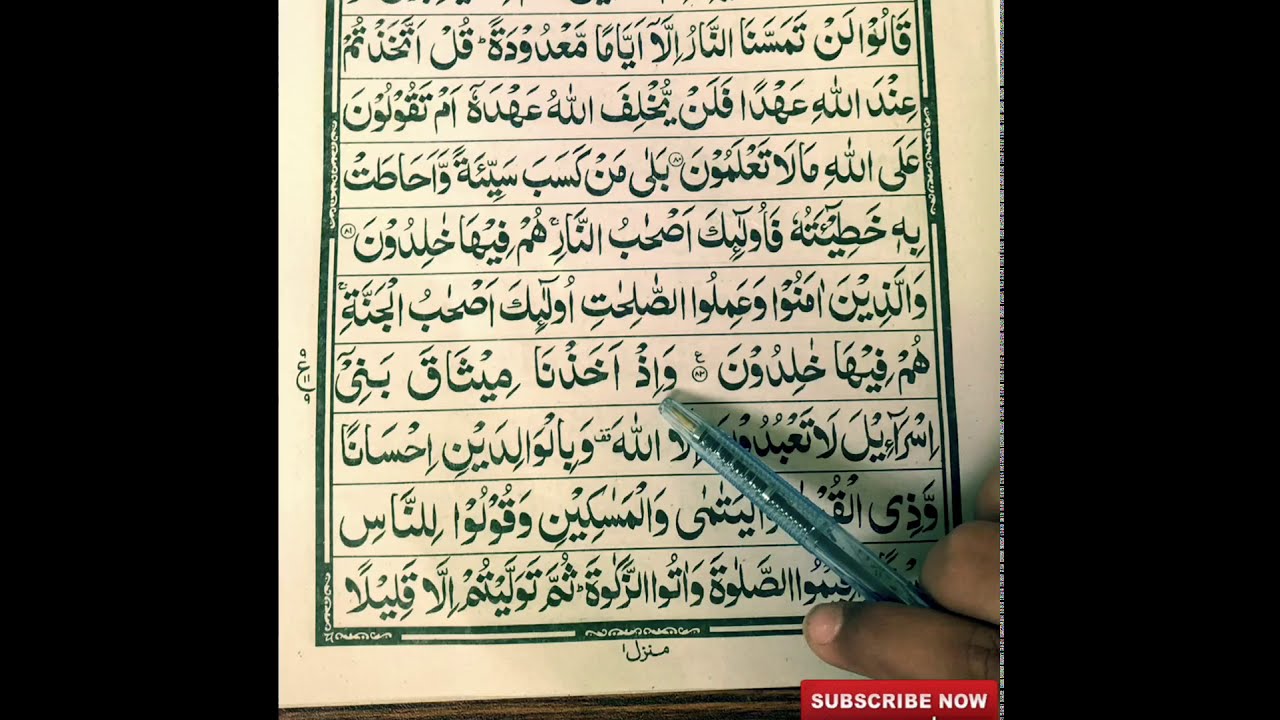 قَالُوْا لَنْ تَمَسَّنَا النَّارُ اِلَّاۤ اَيَّامًا مَّعْدُوْدَةً ؕ قُلْ اَتَّخَذْتُمْ
عِنْدَ اللّٰهِ عَهْدًا فَلَنْ يُّخْلِفَ اللّٰهُ عَهْدَهٗۤ اَمْ تَقُوْلُوْنَ
عَلَى اللّٰهِ مَا لَا تَعْلَمُوْنَ ۸۰ بَلٰى مَنْ كَسَبَ سَيِّئَةً وَّاَحَاطَتْ
بِهٖ خَطِيْٓئَتُهٗ فَاُولٰٓئِكَ اَصْحٰبُ النَّارِ ۚ هُمْ فِيْهَا خٰلِدُوْنَ ۸۱
وَالَّذِيْنَ اٰمَنُوْا وَعَمِلُوا الصّٰلِحٰتِ اُولٰٓئِكَ اَصْحٰبُ الْجَنَّةِ ۚ
هُمْ فِيْهَا خٰلِدُوْنَ ۸۲ ع وَاِذْ اَخَذْنَا مِيْثَاقَ بَنِيْۤ
اِسْرَآءِيْلَ لَا تَعْبُدُوْنَ اِلَّا اللّٰهَ قف وَبِالْوَالِدَيْنِ اِحْسَانًا
وَّذِي وَالْيَتٰمٰى وَالْمَسٰكِيْنِ وَقُوْلُوْا لِلنَّاسِ
الصَّلٰوةَ وَاٰتُوا الزَّكٰوةَ ؕ ثُمَّ تَوَلَّيْتُمْ اِلَّا قَلِيْلًا
منزل ۱
SUBSCRIBE NOW